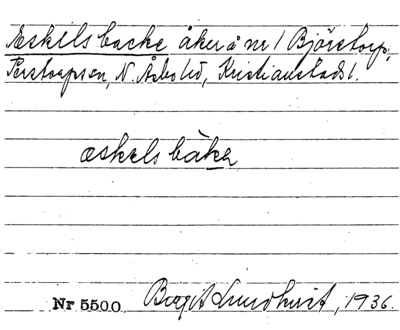 Eskilsbacke åker å nr 1 Björstorp,
Perstorps sn, N. Åsbo hd, Kristianstads l.
æskels bäka
Nr 5500. Birgit Lundqvist, 1936.